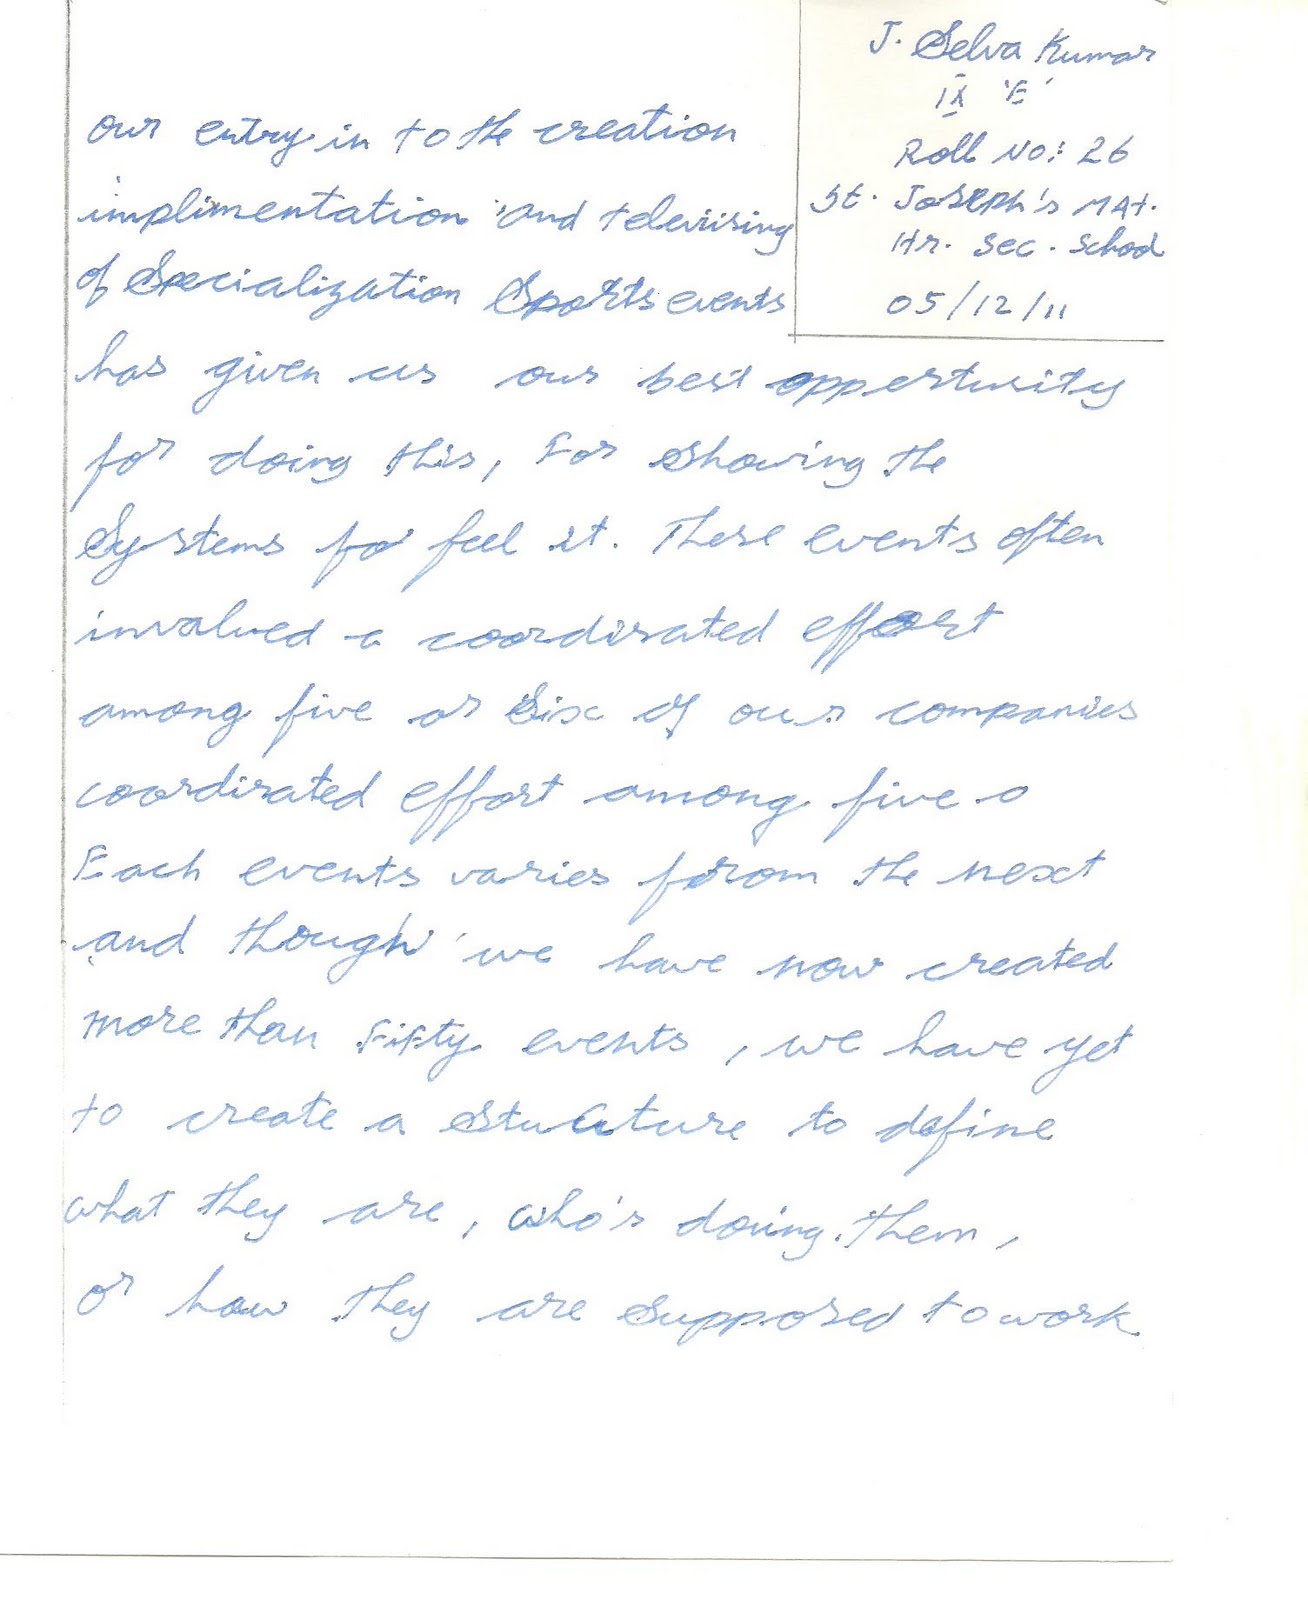 J. Selva Kumar
IX 'E'
Roll No: 26
St. Joseph's Mat.
Hr. Sec. School
05/12/11
our entry in to the creation
implimentation and televising
of Specialization Sports events
has given us our best oppertunity
for doing this, For showing the
Systems for feel it. These events often
involved a coordinated effort
among five or Six of our companies
coordinated effort among five o
Each events varies from the next
and though we have now created
more than Fifty events, we have yet
to create a Stucture to define
what they are, who's doing them,
or how they are supposed to work